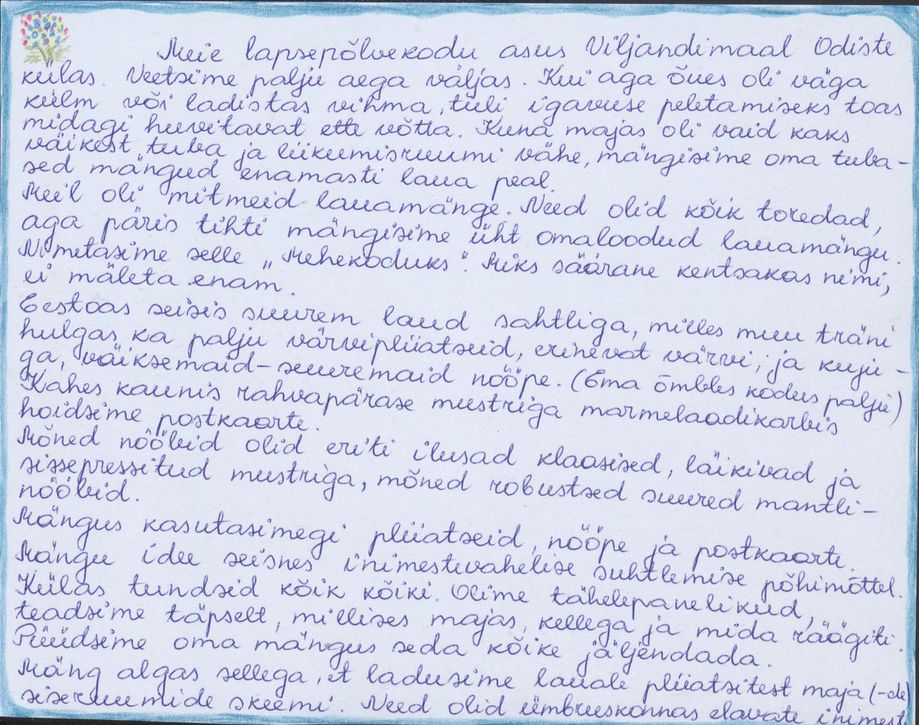 Meie lapsepõlvekodu asus Viljandimaal Odiste
külas. Veetsime palju aega väljas. Kui aga õues oli väga
külm või ladistas vihma, tuli igavuse peletamiseks toas
midagi huvitavat ette võtta. Kuna majas oli vaid kaks
väikest tuba ja liikumisruumi vähe, mängisime oma tuba-
sed mängud enamasti laua peal.
Meil oli mitmeid lauamänge. Need olid kõik toredad,
aga päris tihti mängisime üht omaloodud lauamängu.
Nimetasime selle „Mehekoduks“. Miks säärane kentsakas nimi,
ei mäleta enam.
Eestoas seisis suurem laud sahtliga, milles muu träni
hulgas ka palju värvipliiatseid, erinevat värvi; ja kuju-
ga, väiksemaid-suuremaid nööpe. (Ema õmbles kodus palju)
Kahes kaunis rahvapärase mustriga marmelaadikarbis
hoidsime postkaarte.
Mõned nööbid olid eriti ilusad klaasised, läikivad ja
sissepressitud mustriga, mõned robustsed suured mantli-
nööbid.
Mängus kasutasimegi pliiatseid, nööpe ja postkaarte.
Mängu idee seisnes inimestevahelise suhtlemise põhimõttel.
Külas tundsid kõik kõiki. Olime tähelepanelikud,
teadsime täpselt, millises majas, kellega ja mida räägiti.
Püüdsime oma mängus seda kõike jäljendada.
Mäng algas sellega, et ladusime lauale pliiatsitest maja (-de)
siseruumide skeemi. Need olid ümbruskonnas elavate inimest